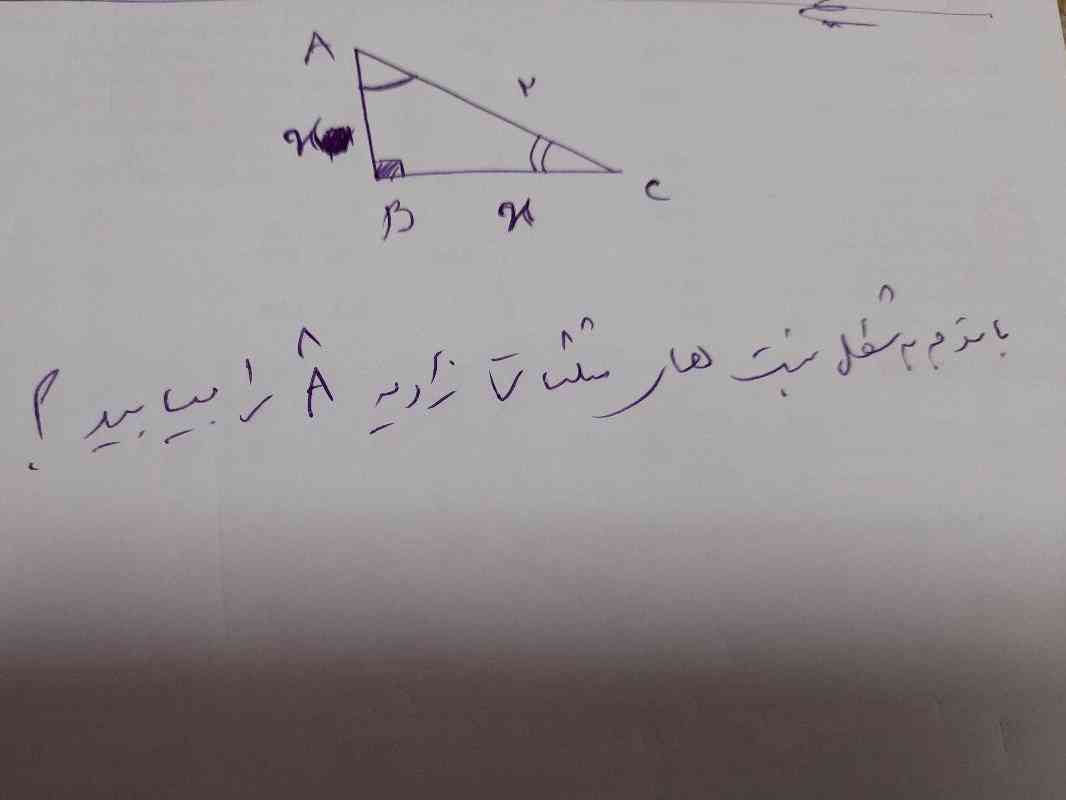 A
۲
x
B
x
C
با توجه به شکل نسبت های مثلثاتی زاویه Â را بیابید؟